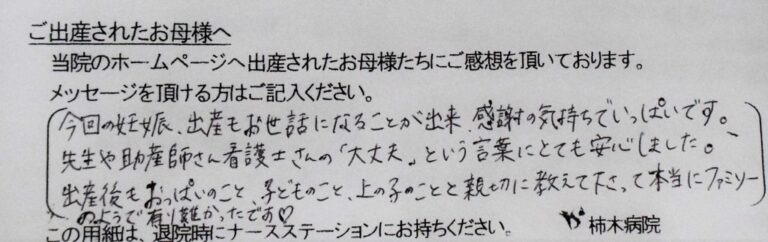 ご出産されたお母様へ
当院のホームページへ出産されたお母様たちにご感想を頂いております。
メッセージを頂ける方はご記入ください。
今回の妊娠、出産もお世話になることが出来、感謝の気持ちでいっぱいです。
先生や助産師さん看護士さんの「大丈夫。」という言葉にとても安心しました。
出産後もおっぱいのこと、子どものこと、上の子のことと親切に教えて下さって本当にファミリー
のようで有り難かったです♡
この用紙は、退院時にナースステーションにお持ちください。 柿木病院